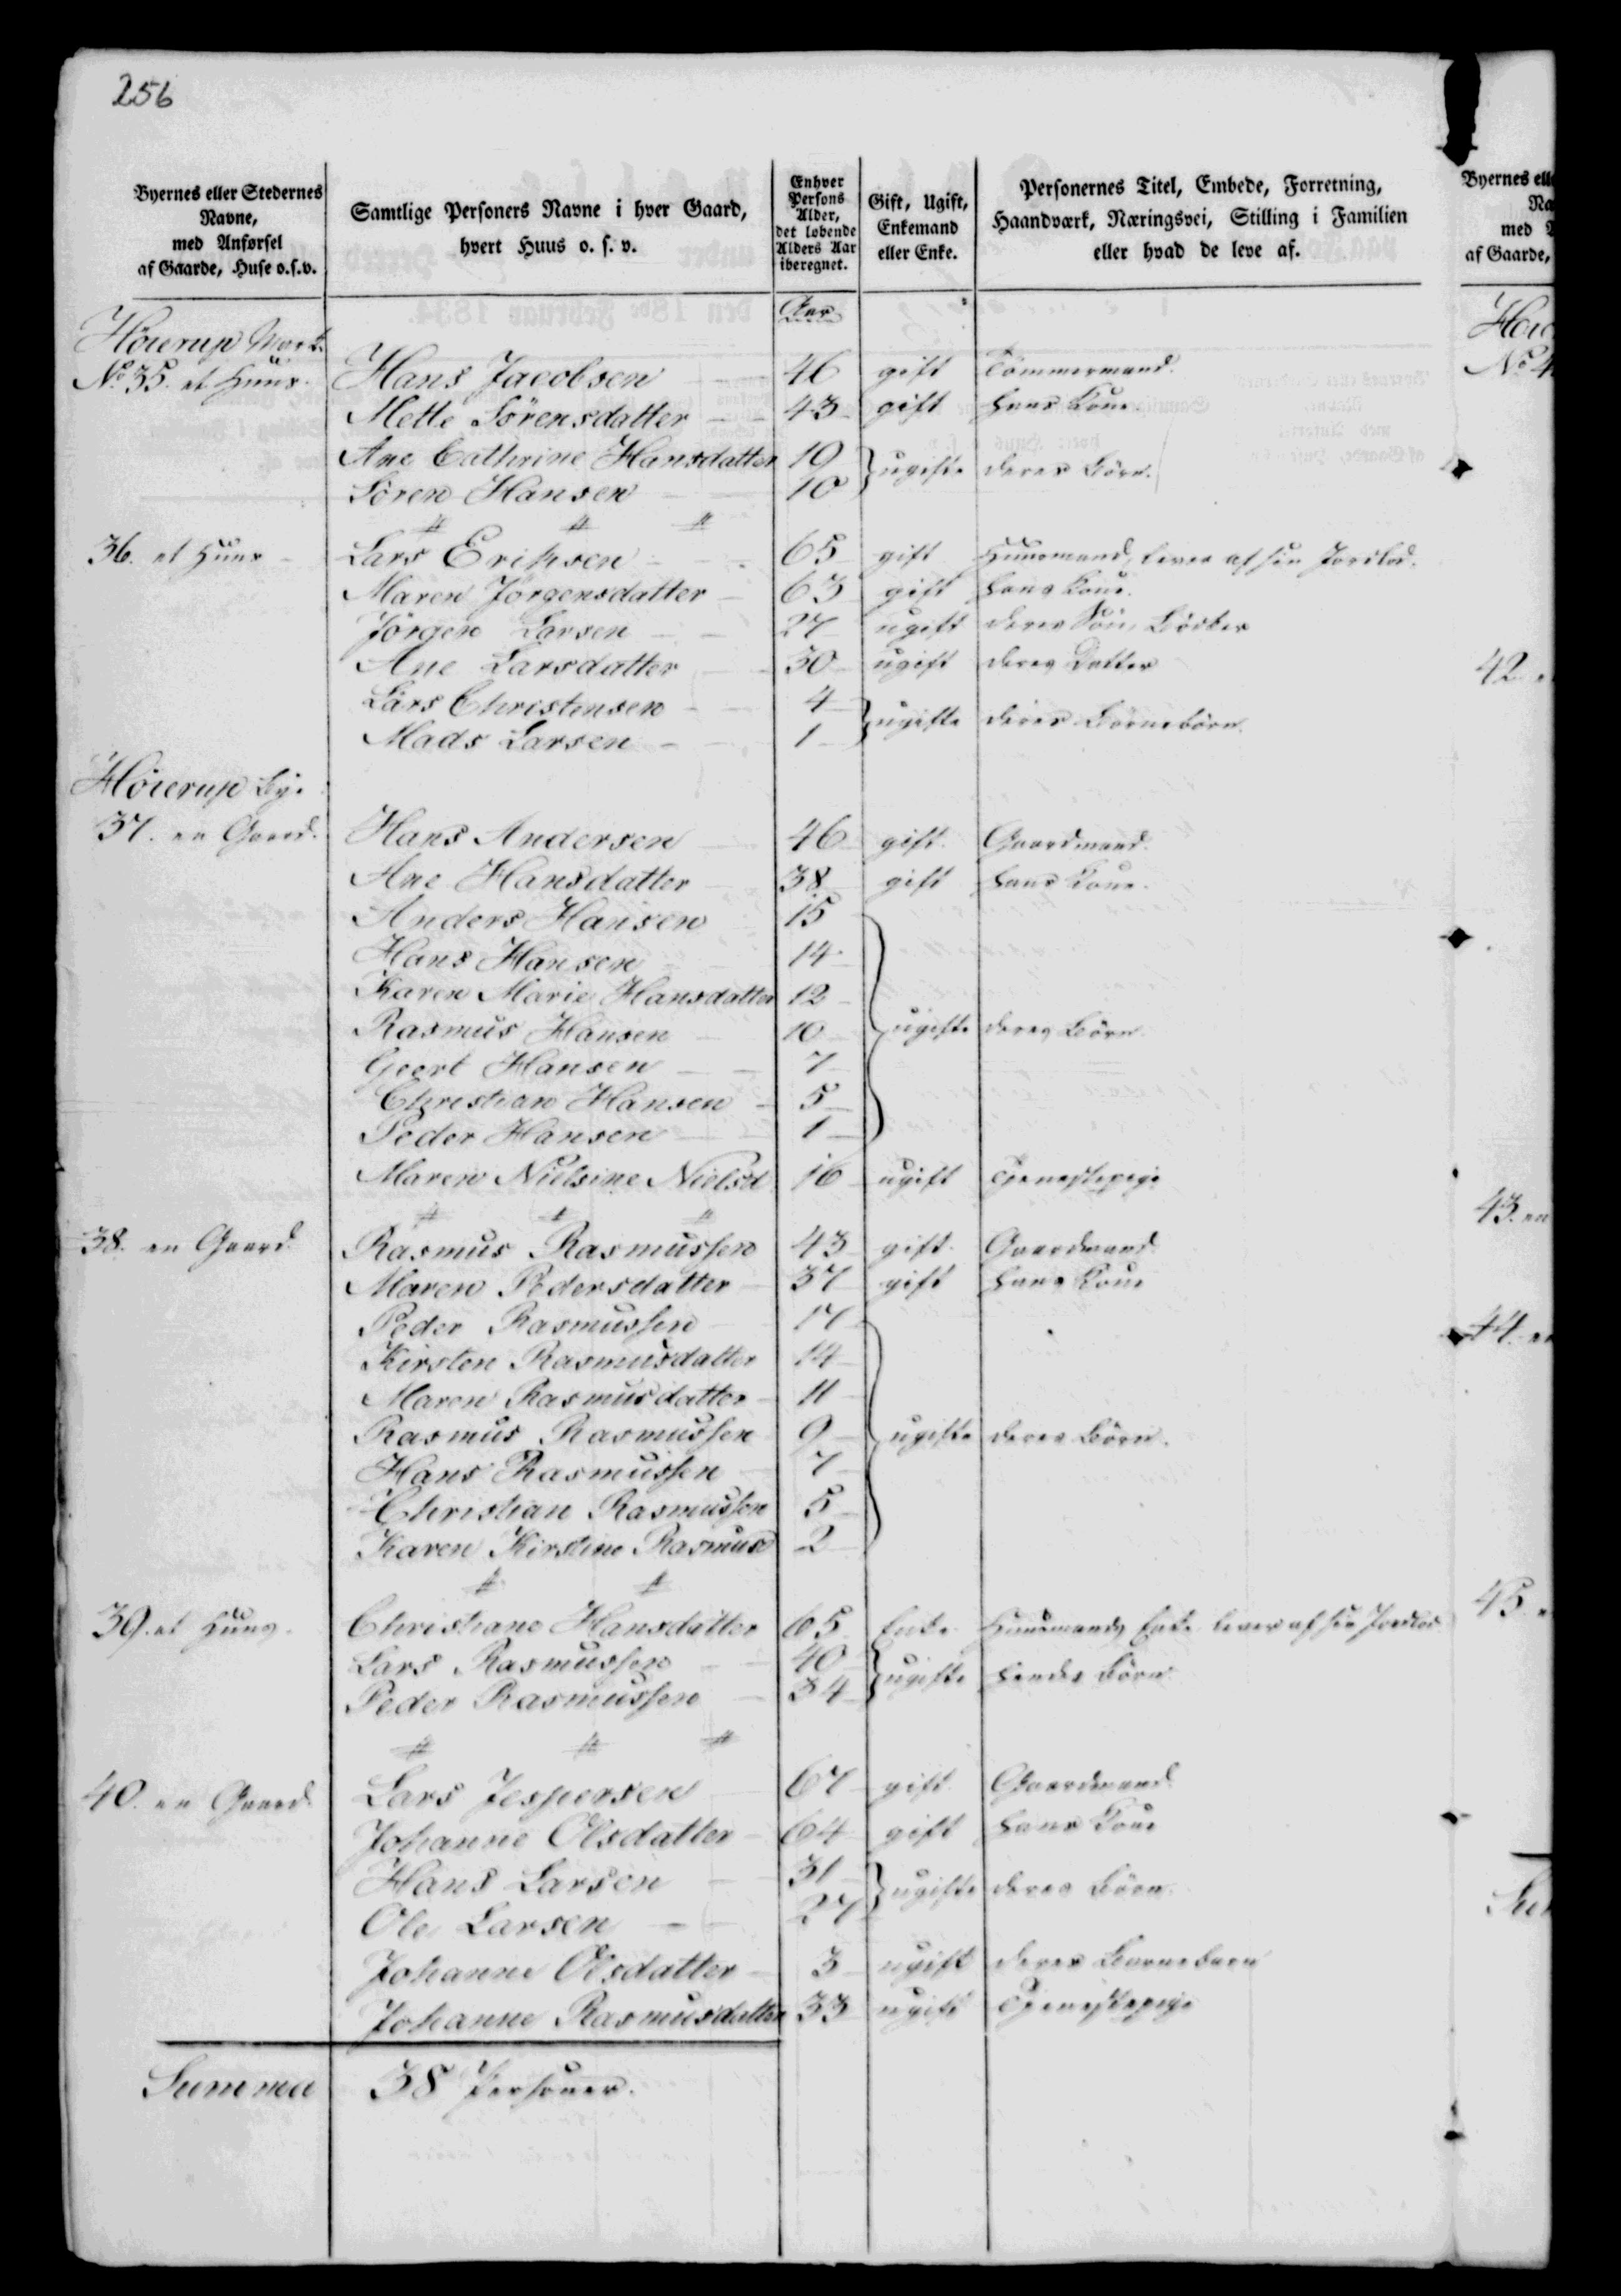 256
Byernes eller Stedernes Navne, med Anførsel af Gaarde, Huse o.s.v.
Samtlige Personers Navne i hver Gaard, hvert Huus o. s. v.
Enhver Persons Alder, det løbende Alders Aar iberegnet.
Gift, Ugift, Enkemand eller Enke.
Personernes Titel, Embede, Forretning, Haandværk, Næringsvei, Stilling i Familien eller hvad de leve af.
Aar
Höierup Mark
No 35. et Huus. Hans Jacobsen 46 gift Tömmermand.
Mette Sörensdatter 43 gift hans Kone
Ane Cathrine Hansdatter 19 ugifte deres Börn.
Sören Hansen 10
36. et Huus Lars Eriksen 65 gift Huusmand, lever af sin Jordlod.
Maren Jörgensdatter 63 gift hans Kone.
Jörgen Larsen 27 ugift deres Sön, Bödker
Ane Larsdatter 30 ugift deres Datter
Lars Christensen 4 ugifte deres Börnebörn.
Mads Larsen 1
Höierup Bye
37. en Gaard. Hans Andersen 46 gift. Gaardmand.
Ane Hansdatter 38 gift hans Kone.
Anders Hansen 15
Hans Hansen 14
Karen Marie Hansdatter 12
Rasmus Hansen 10 ugifte deres Börn.
Geert Hansen 7
Christian Hansen 5
Peder Hansen 1
Maren Nielsine Nielsd 16 ugift Tjenestepige
38. en Gaard. Rasmus Rasmussen 43 gift. Gaardmand.
Maren Pedersdatter 37 gift hans Kone
Peder Rasmussen 17
Kirsten Rasmusdatter 14
Maren Rasmusdatter 11
Rasmus Rasmussen 9 ugifte deres Börn.
Hans Rasmussen 7
Christian Rasmussen 5
Karen Kirstine Rasmusd 2
39. et Huus. Christiane Hansdatter 65 Enke Huusmands Enke lever af sin Jordlod
Lars Rasmussen 40 ugifte hendes Börn
Peder Rasmussen 34
40. en Gaard. Lars Jespersen 67 gift. Gaardmand.
Johanne Olsdatter 64 gift hans Kone
Hans Larsen 31 ugifte deres Börn.
Ole Larsen 27
Johanne Olsdatter 3 ugift deres Barnebarn
Johanne Rasmusdatter 33 ugift Tjenestepige
Summa 38 Personer.
Byernes
med
af Gaarde,
No 4
42.
43. en
44.
45.